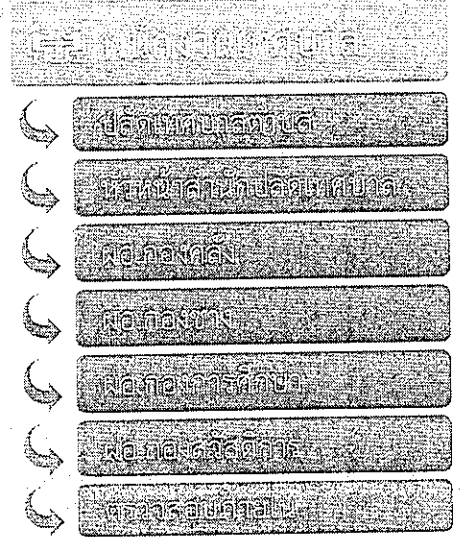 ปลัดเทศบาลตำบล
หัวหน้าสำนักปลัดเทศบาล
ผอ.กองคลัง
ผอ.กองช่าง
ผอ.กองการศึกษา
ผอ.กองสวัสดิการ
ตรวจสอบภายใน